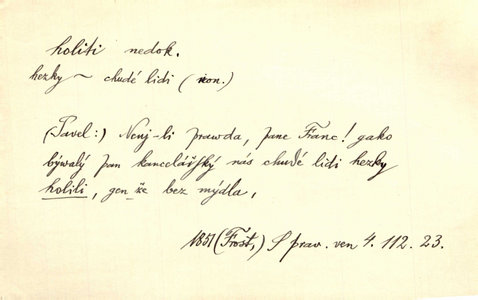 holiti nedok.
hezky ~ chudé lidi (iron.)
(Pavel:) Neuj-li prawda, pane Franc! gako
býwalý pan kancelářský nás chudé lidi hezky
holili, gen že bez mýdla,
1851 (Frošt,) S praw. ven 4. 112. 23.